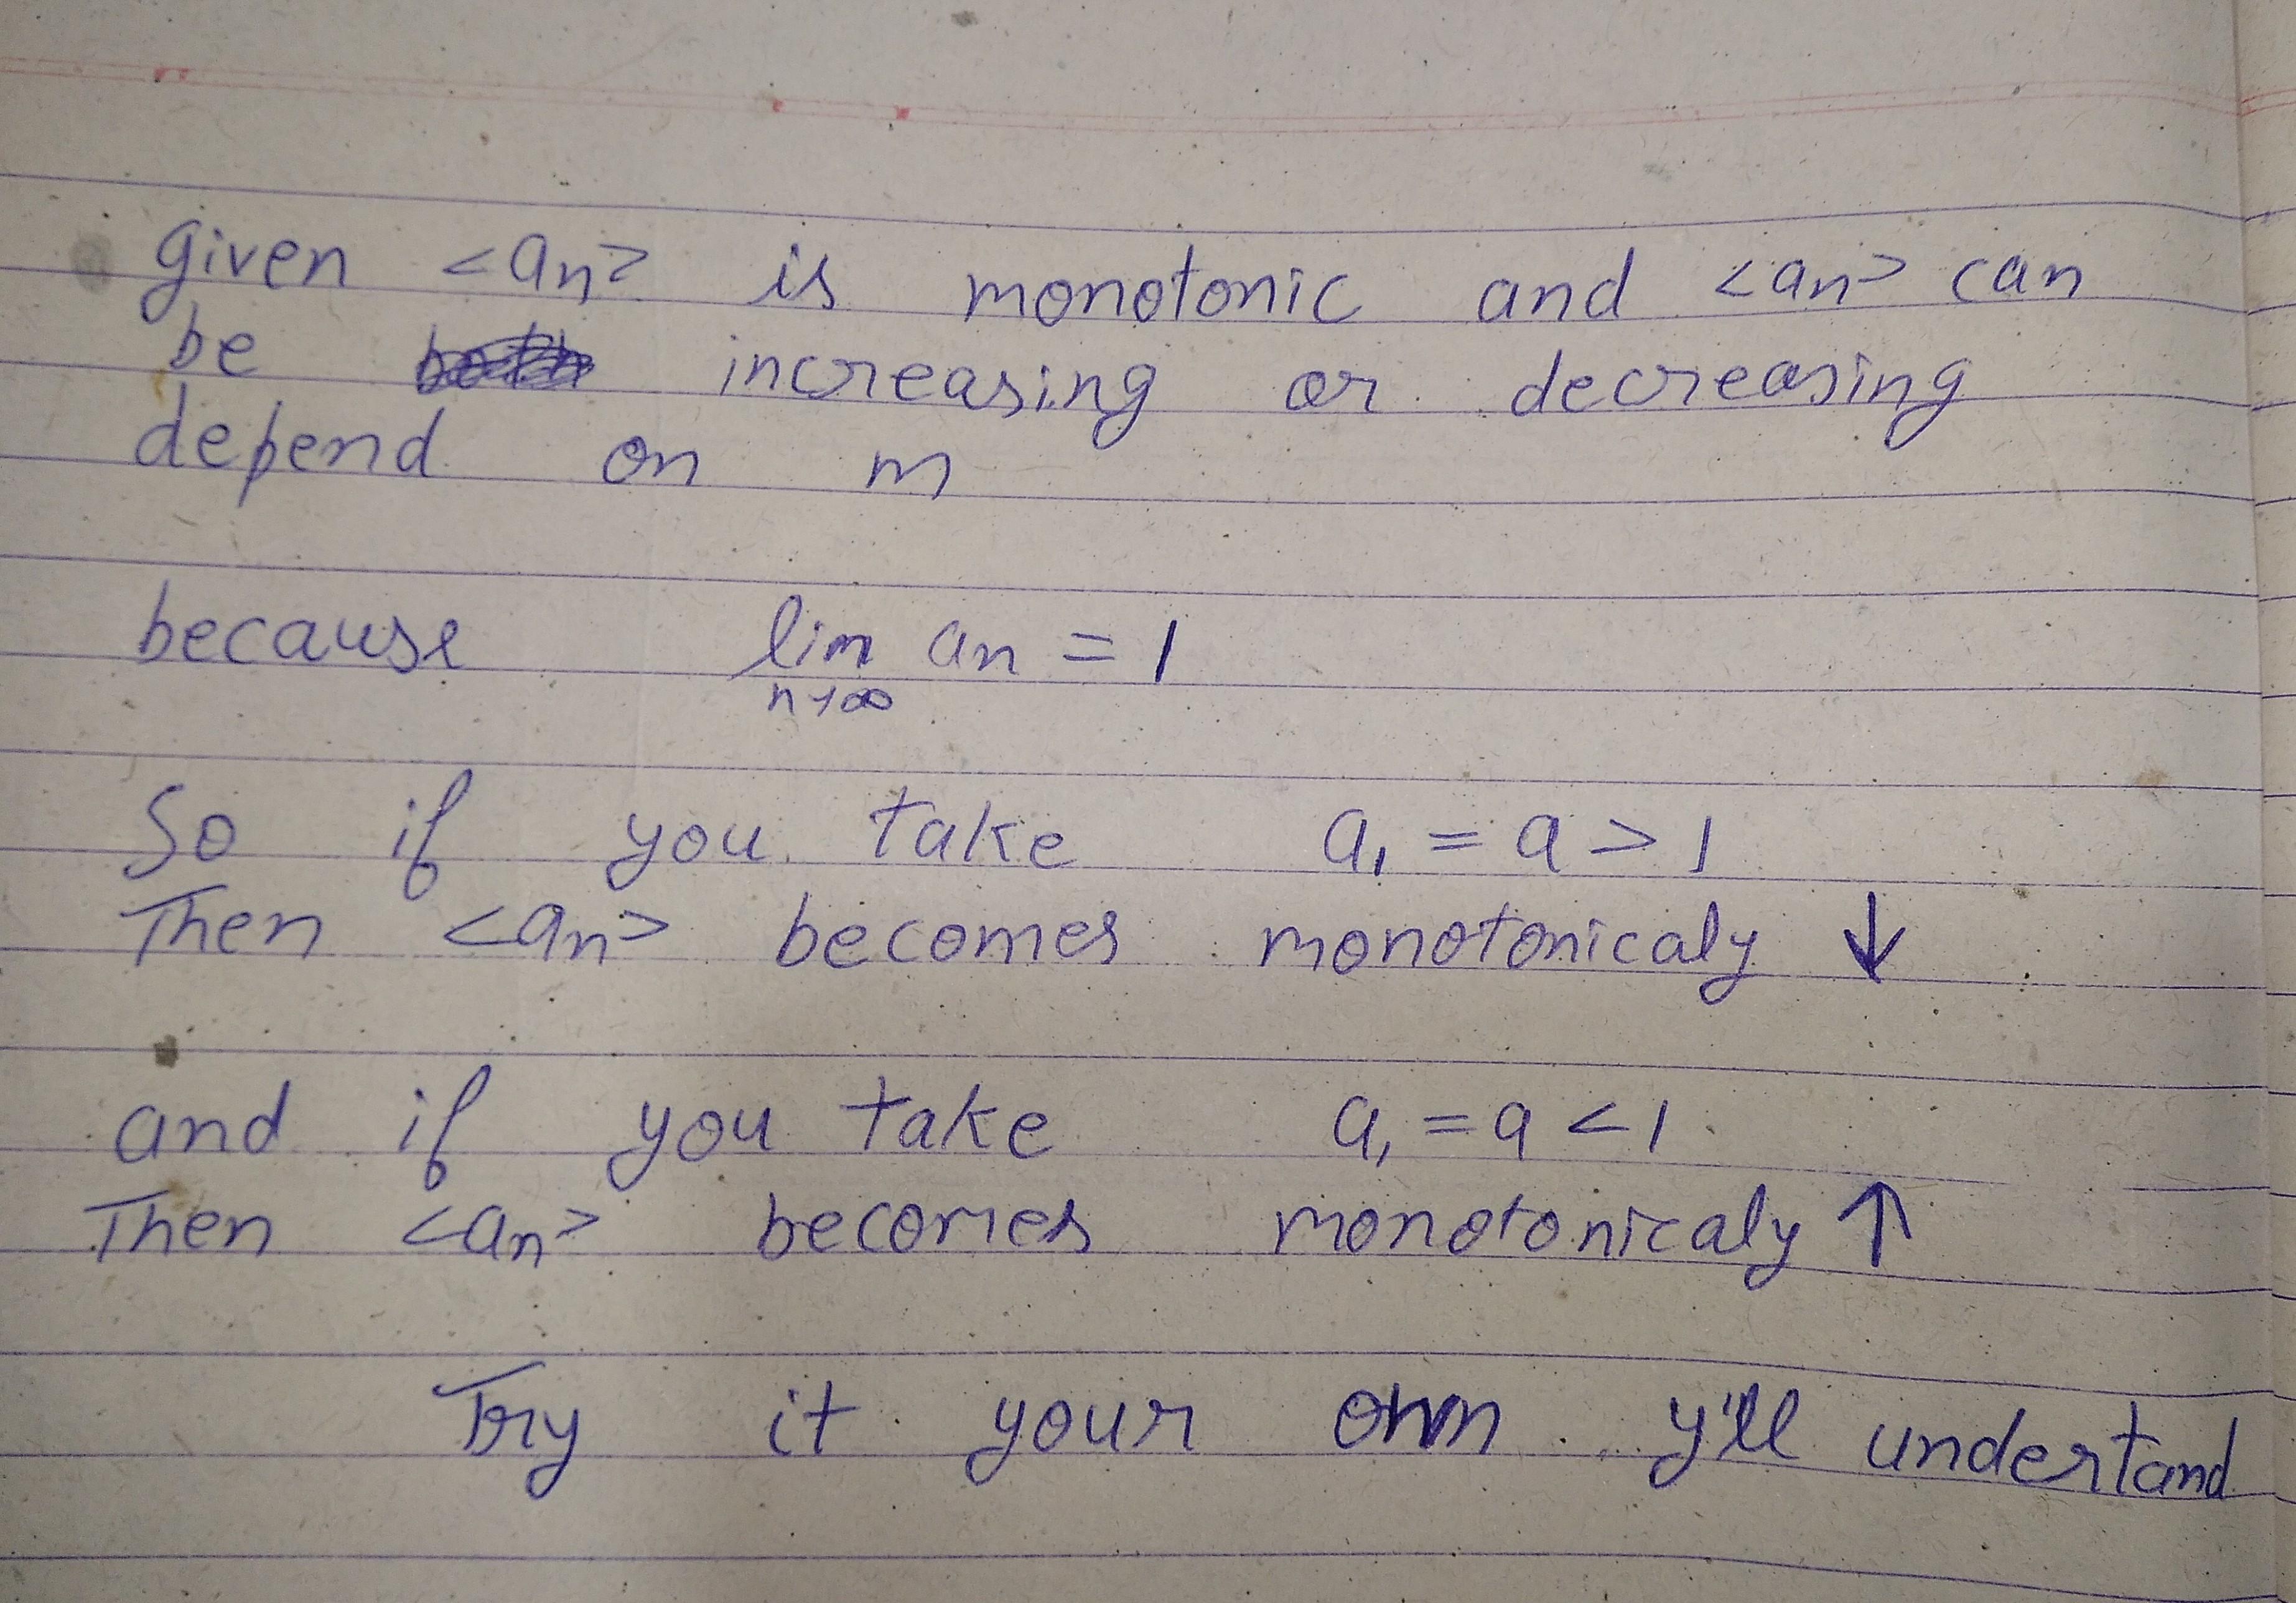 given <an> is monotonic and <an> can
be increasing or decreasing
depend on m
because lim an = 1
n→∞
So if you take a1 = a > 1
Then <an> becomes monotonicaly ↓
and if you take a1 = a < 1
Then <an> becomes monotonicaly ↑
Try it your own y'll undertand